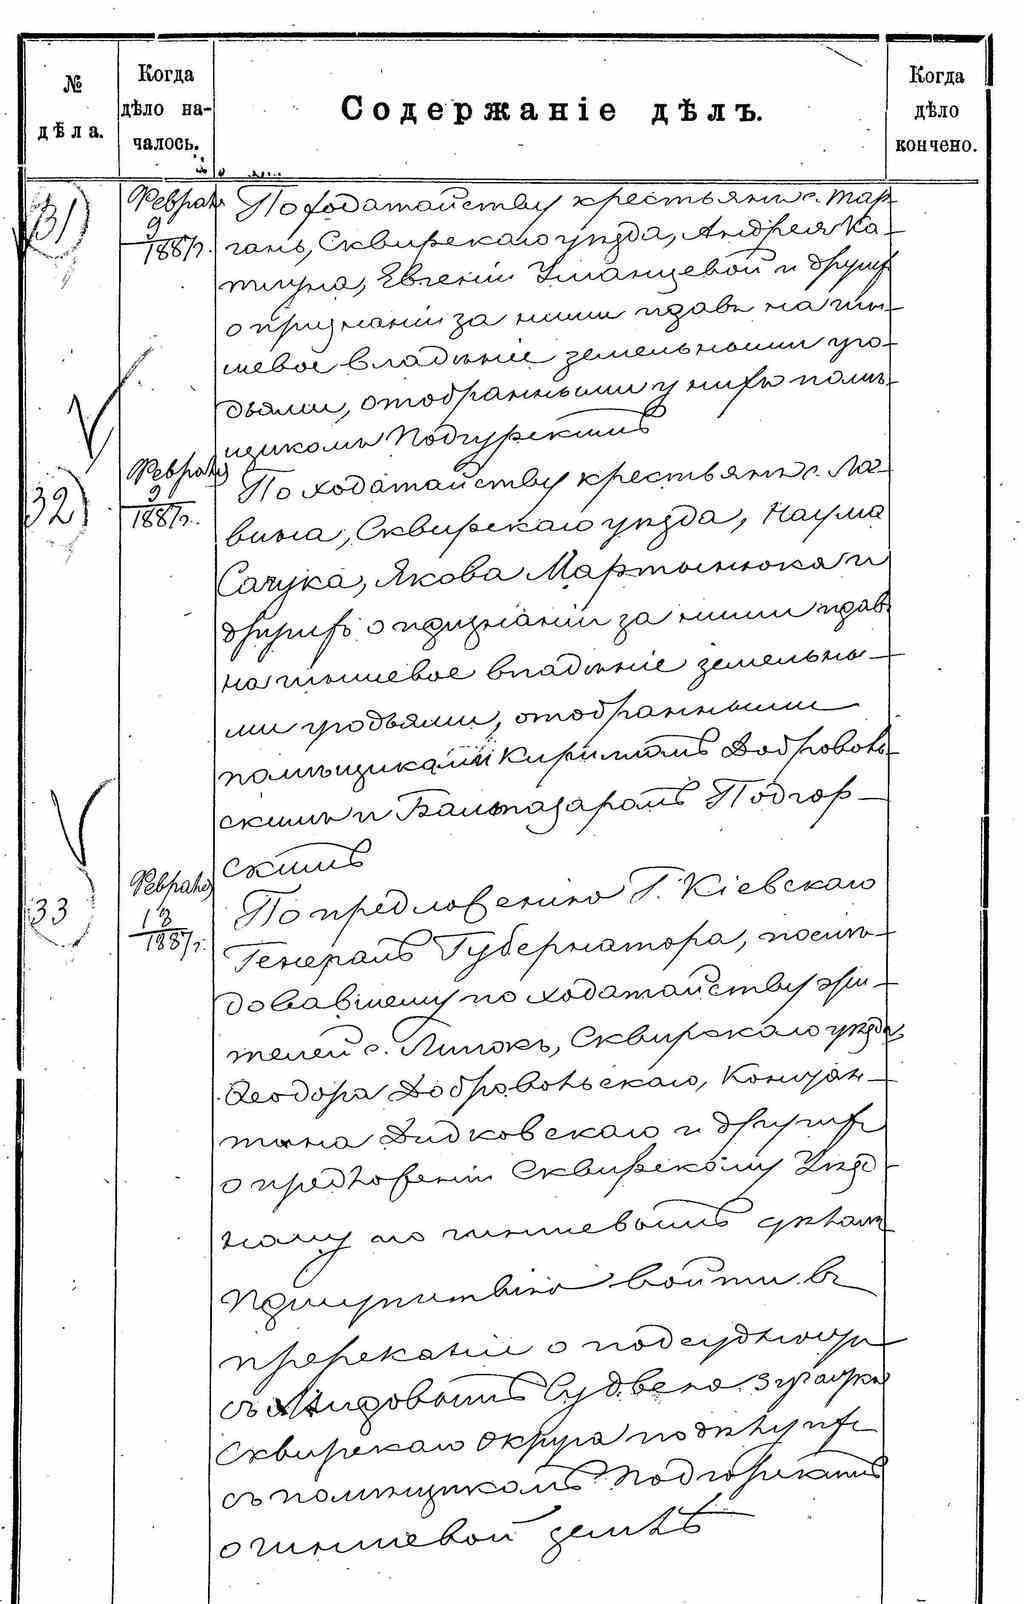 № дѣла.
Когда дѣло началось.
Содержаніе дѣлъ.
Когда дѣло кончено.
31
Февраля 9 1887 г.
По ходатайству крестьянъ с. Тар-
гань, Сквирскаго уѣзда, Андрея Ка-
тиуна, Евгеніи Уманцевой и другихъ
о признаніи за ними правъ на чин-
шевое владѣніе земельными уго-
дьями, отобранными у нихъ помѣ-
щикомъ Подгурскимъ
32
Февраля 9 1887 г.
По ходатайству крестьянъ с. Ло-
вина, Сквирскаго уѣзда, Наума
Сачука, Якова Мартынюка и
другихъ о признаніи за ними правъ
на чиншевое владѣніе земельны-
ми угодьями, отобранными
помѣщиками Кириломъ Доброволь-
скимъ и Бальтазаромъ Подгор-
скимъ
33
Февраля 13 1887 г.
По предложенію Г. Кіевскаго
Генералъ Губернатора, послѣ-
довавшему по ходатайству жи-
телей с. Липокъ, Сквирскаго уѣзда,
Ѳеодора Добровольскаго, Констан-
тина Дидковскаго и другихъ
о предложеніи Сквирскому Уѣзд-
ному по чиншевымъ дѣламъ
Присутствію войти въ
пререканіи о подсудности
съ Мировымъ Судьею 3 участка
Сквирскаго Округа по дѣлу ихъ
съ помѣщикомъ Подгорскимъ
о чиншевой землѣ